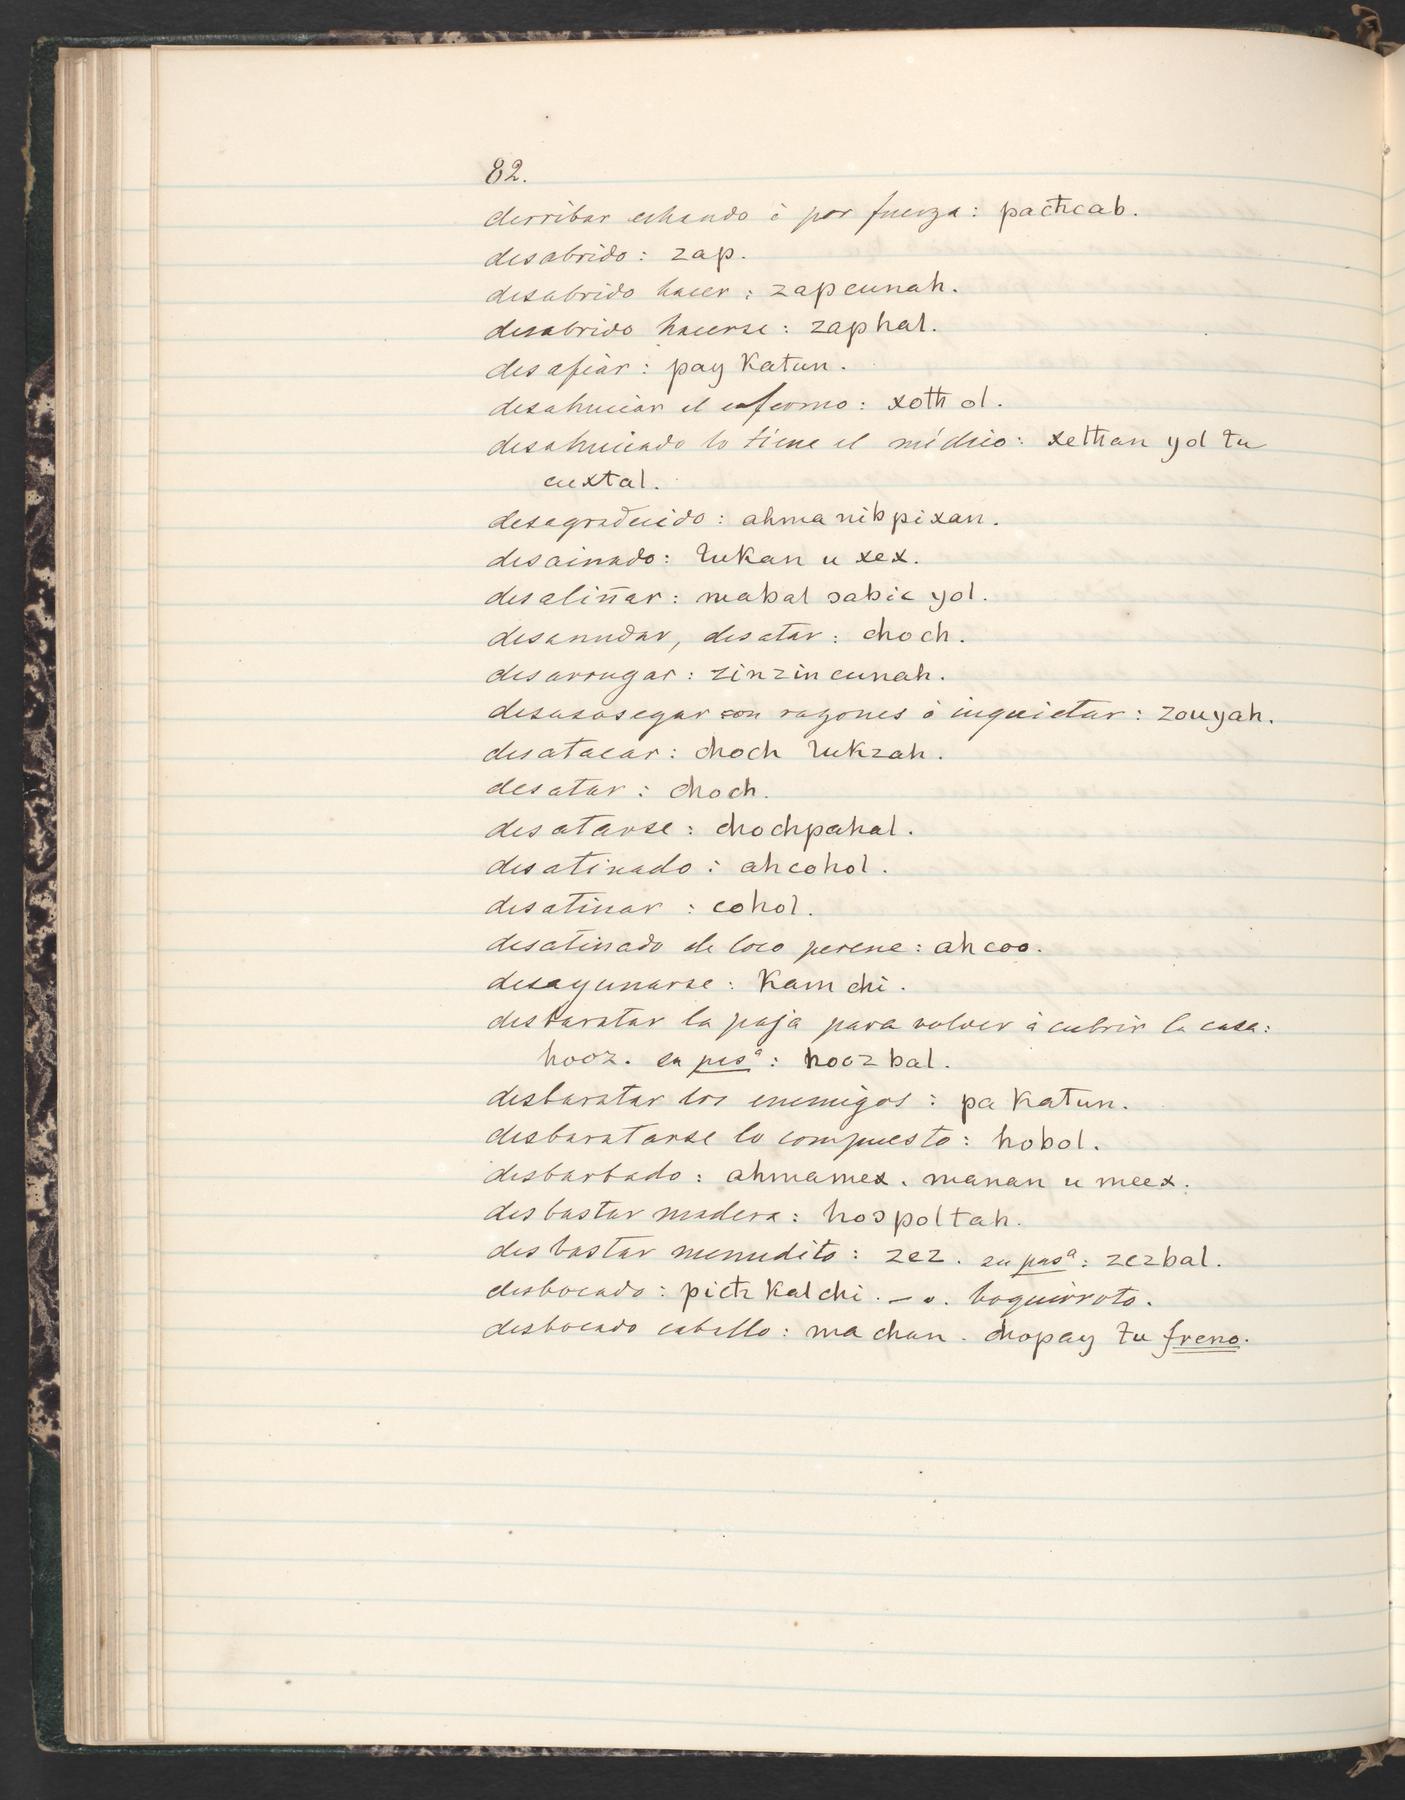 82.
derribar echando ó por fuerza: pacħcab.
desabrido: zap.
desabrido hacer: zapcunah.
desabrido hacerse: zaphal.
desafiar: pay Katun.
desahuciar el enfermo: xotħ ol.
desahuciado lo tiene el médico: xetħan yol tu
cuxtal.
desagradecido: ahma nib pixan.
desainado: lukan u xex.
desaliñar: mabal ɔabic yol.
desanudar, desatar: choch.
desarrugar: zinzincunah.
desasosegar con razones ó inquietar: zouyah.
desatacar: choch lukzah.
desatar: choch.
desatarse: chochpahal.
desatinado: ahcohol.
desatinar: cohol.
desatinado de loco perene: ahcoo.
desayunarse: Kam chi.
desbaratar la paja para volver á cubrir la casa:
hooz. su pasª: hoozbal.
desbaratar los enemigos: pa Katun.
desbaratarse lo compuesto: hobol.
desbarbado: ahmamex. manan u meex.
desbastar madera: hoɔpoltah.
desbastar menudito: zez. su pasª: zezbal.
desbocado: picħ Kalchi. — v. boquirroto.
desbocado caballo: ma chan. chopay tu freno.